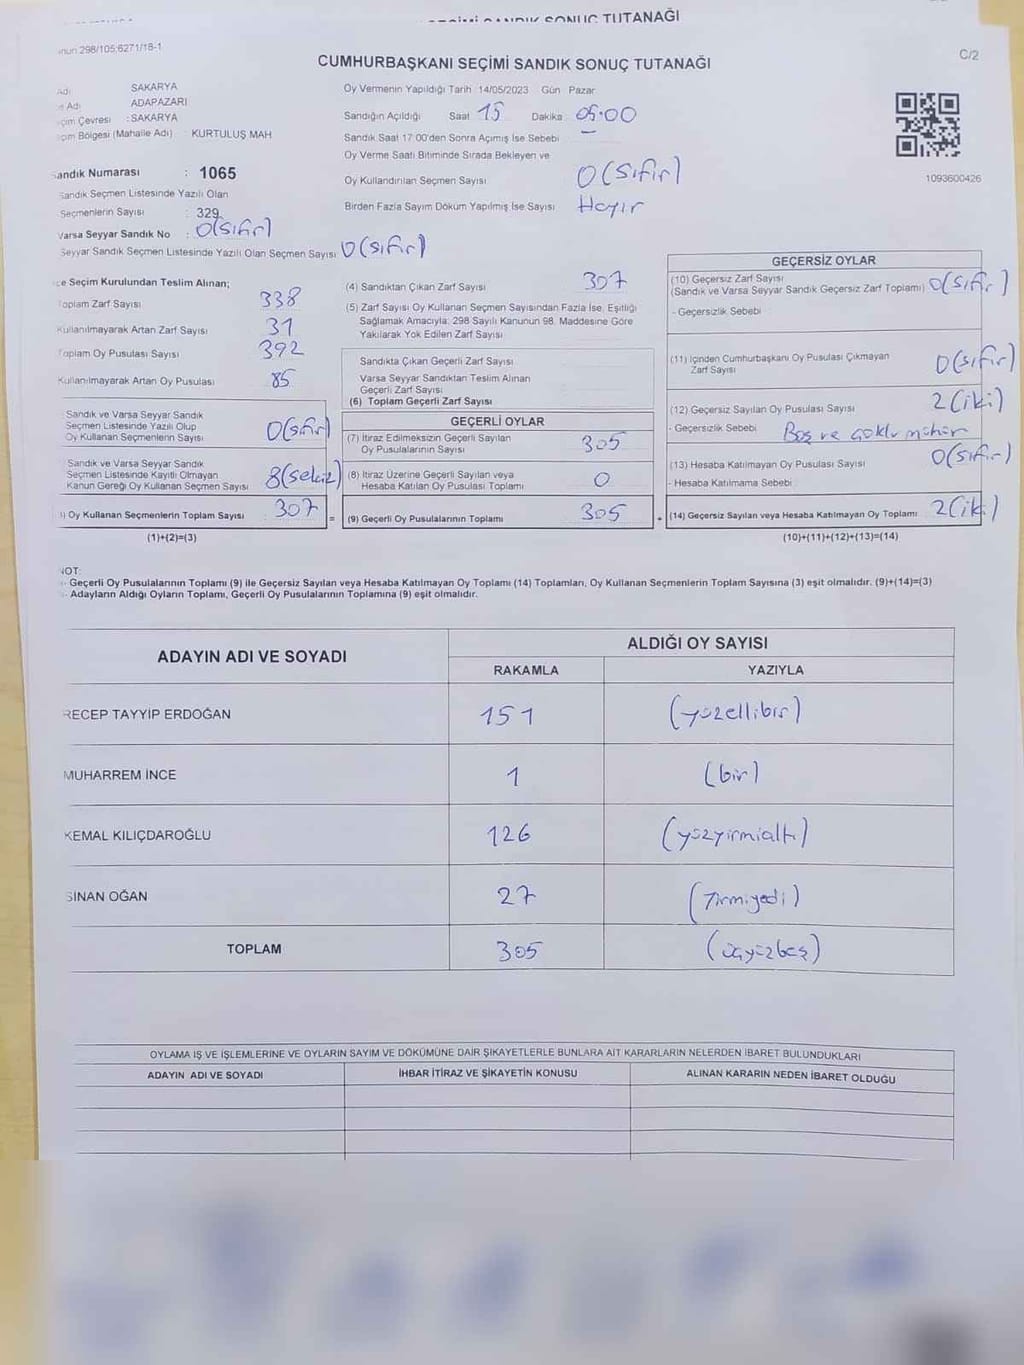 SONUÇ TUTANAĞI
298/105;6271/18-1
C/2
CUMHURBAŞKANI SEÇİMİ SANDIK SONUÇ TUTANAĞI
Adı SAKARYA
Adı ADAPAZARI
Çevresi : SAKARYA
Bölgesi (Mahalle Adı) : KURTULUŞ MAH
Sandık Numarası : 1065
Sandık Seçmen Listesinde Yazılı Olan
Seçmenlerin Sayısı : 329
Varsa Seyyar Sandık No : 0(sıfır)
Seyyar Sandık Seçmen Listesinde Yazılı Olan Seçmen Sayısı 0(sıfır)
Oy Vermenin Yapıldığı Tarih 14/05/2023 Gün Pazar
Sandığın Açıldığı Saat 15 Dakika
Sandık Saat 17:00'den Sonra Açımış İse Sebebi —
Oy Verme Saati Bitiminde Sırada Bekleyen ve
Oy Kullandırılan Seçmen Sayısı 0(sıfır)
Birden Fazla Sayım Döküm Yapılmış İse Sayısı Hayır
1093600426
Seçim Kurulundan Teslim Alınan;
Toplam Zarf Sayısı 338
Kullanılmayarak Artan Zarf Sayısı 31
Toplam Oy Pusulası Sayısı 392
Kullanılmayarak Artan Oy Pusulası 85
Sandık ve Varsa Seyyar Sandık
Seçmen Listesinde Yazılı Olup
Oy Kullanan Seçmenlerin Sayısı 0(sıfır)
Sandık ve Varsa Seyyar Sandık
Seçmen Listesinde Kayıtlı Olmayan
Kanun Gereği Oy Kullanan Seçmen Sayısı 8(sekiz)
Oy Kullanan Seçmenlerin Toplam Sayısı 307
(1)+(2)=(3)
(4) Sandıktan Çıkan Zarf Sayısı 307
(5) Zarf Sayısı Oy Kullanan Seçmen Sayısından Fazla İse, Eşitliği
Sağlamak Amacıyla; 298 Sayılı Kanunun 98. Maddesine Göre
Yakılarak Yok Edilen Zarf Sayısı
Sandıkta Çıkan Geçerli Zarf Sayısı
Varsa Seyyar Sandıktan Teslim Alınan
Geçerli Zarf Sayısı
(6) Toplam Geçerli Zarf Sayısı
GEÇERLİ OYLAR
(7) İtiraz Edilmeksizin Geçerli Sayılan
Oy Pusulalarının Sayısı 305
(8) İtiraz Üzerine Geçerli Sayılan veya
Hesaba Katılan Oy Pusulası Toplamı 0
= (9) Geçerli Oy Pusulalarının Toplamı 305
GEÇERSİZ OYLAR
(10) Geçersiz Zarf Sayısı
(Sandık ve Varsa Seyyar Sandık Geçersiz Zarf Toplamı) 0(sıfır)
- Geçersizlik Sebebi
(11) İçinden Cumhurbaşkanı Oy Pusulası Çıkmayan
Zarf Sayısı 0(sıfır)
(12) Geçersiz Sayılan Oy Pusulası Sayısı 2(iki)
- Geçersizlik Sebebi Boş ve çoklu mühür
(13) Hesaba Katılmayan Oy Pusulası Sayısı 0(sıfır)
- Hesaba Katılmama Sebebi
+ (14) Geçersiz Sayılan veya Hesaba Katılmayan Oy Toplamı 2(iki)
(10)+(11)+(12)+(13)=(14)
NOT:
- Geçerli Oy Pusulalarının Toplamı (9) ile Geçersiz Sayılan veya Hesaba Katılmayan Oy Toplamı (14) Toplamları, Oy Kullanan Seçmenlerin Toplam Sayısına (3) eşit olmalıdır. (9)+(14)=(3)
- Adayların Aldığı Oyların Toplamı, Geçerli Oy Pusulalarının Toplamına (9) eşit olmalıdır.
ADAYIN ADI VE SOYADI
ALDIĞI OY SAYISI
RAKAMLA YAZIYLA
RECEP TAYYİP ERDOĞAN 151 (yüzellibir)
MUHARREM İNCE 1 (bir)
KEMAL KILIÇDAROĞLU 126 (yüzyirmialtı)
SİNAN OĞAN 27 (Yirmiyedi)
TOPLAM 305 (üçyüzbeş)
OYLAMA İŞ VE İŞLEMLERİNE VE OYLARIN SAYIM VE DÖKÜMÜNE DAİR ŞİKAYETLERLE BUNLARA AİT KARARLARIN NELERDEN İBARET BULUNDUKLARI
ADAYIN ADI VE SOYADI İHBAR İTİRAZ VE ŞİKAYETİN KONUSU ALINAN KARARIN NEDEN İBARET OLDUĞU